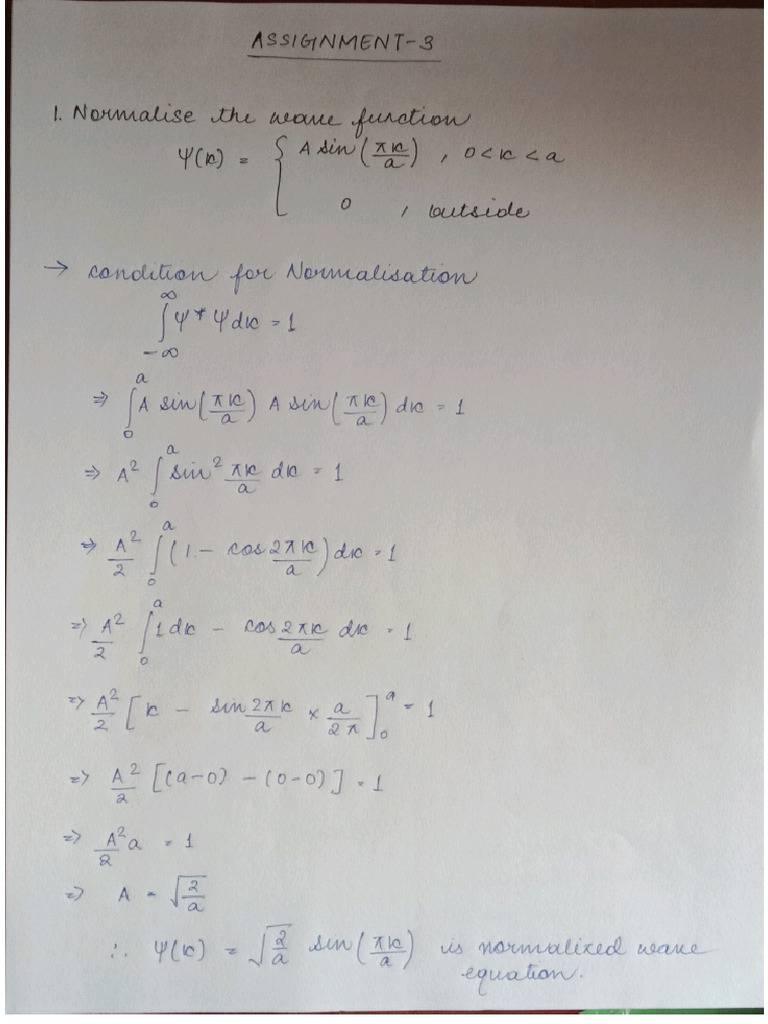 ASSIGNMENT-3
1. Normalise the wave function
ψ(x) = { A sin(πx/a) , 0<x<a
0 , outside
→ condition for Normalisation
∫_{-∞}^{∞} ψ* ψ dx = 1
⇒ ∫_0^a A sin(πx/a) A sin(πx/a) dx = 1
⇒ A² ∫_0^a sin² πx/a dx = 1
⇒ A²/2 ∫_0^a (1 - cos 2πx/a) dx = 1
⇒ A²/2 ∫_0^a 1 dx - cos 2πx/a dx = 1
⇒ A²/2 [x - sin 2πx/a × a/2π]_0^a = 1
⇒ A²/2 [(a-0) - (0-0)] = 1
⇒ A²/2 a = 1
⇒ A = √(2/a)
∴ ψ(x) = √(2/a) sin(πx/a) is normalized wave
equation.